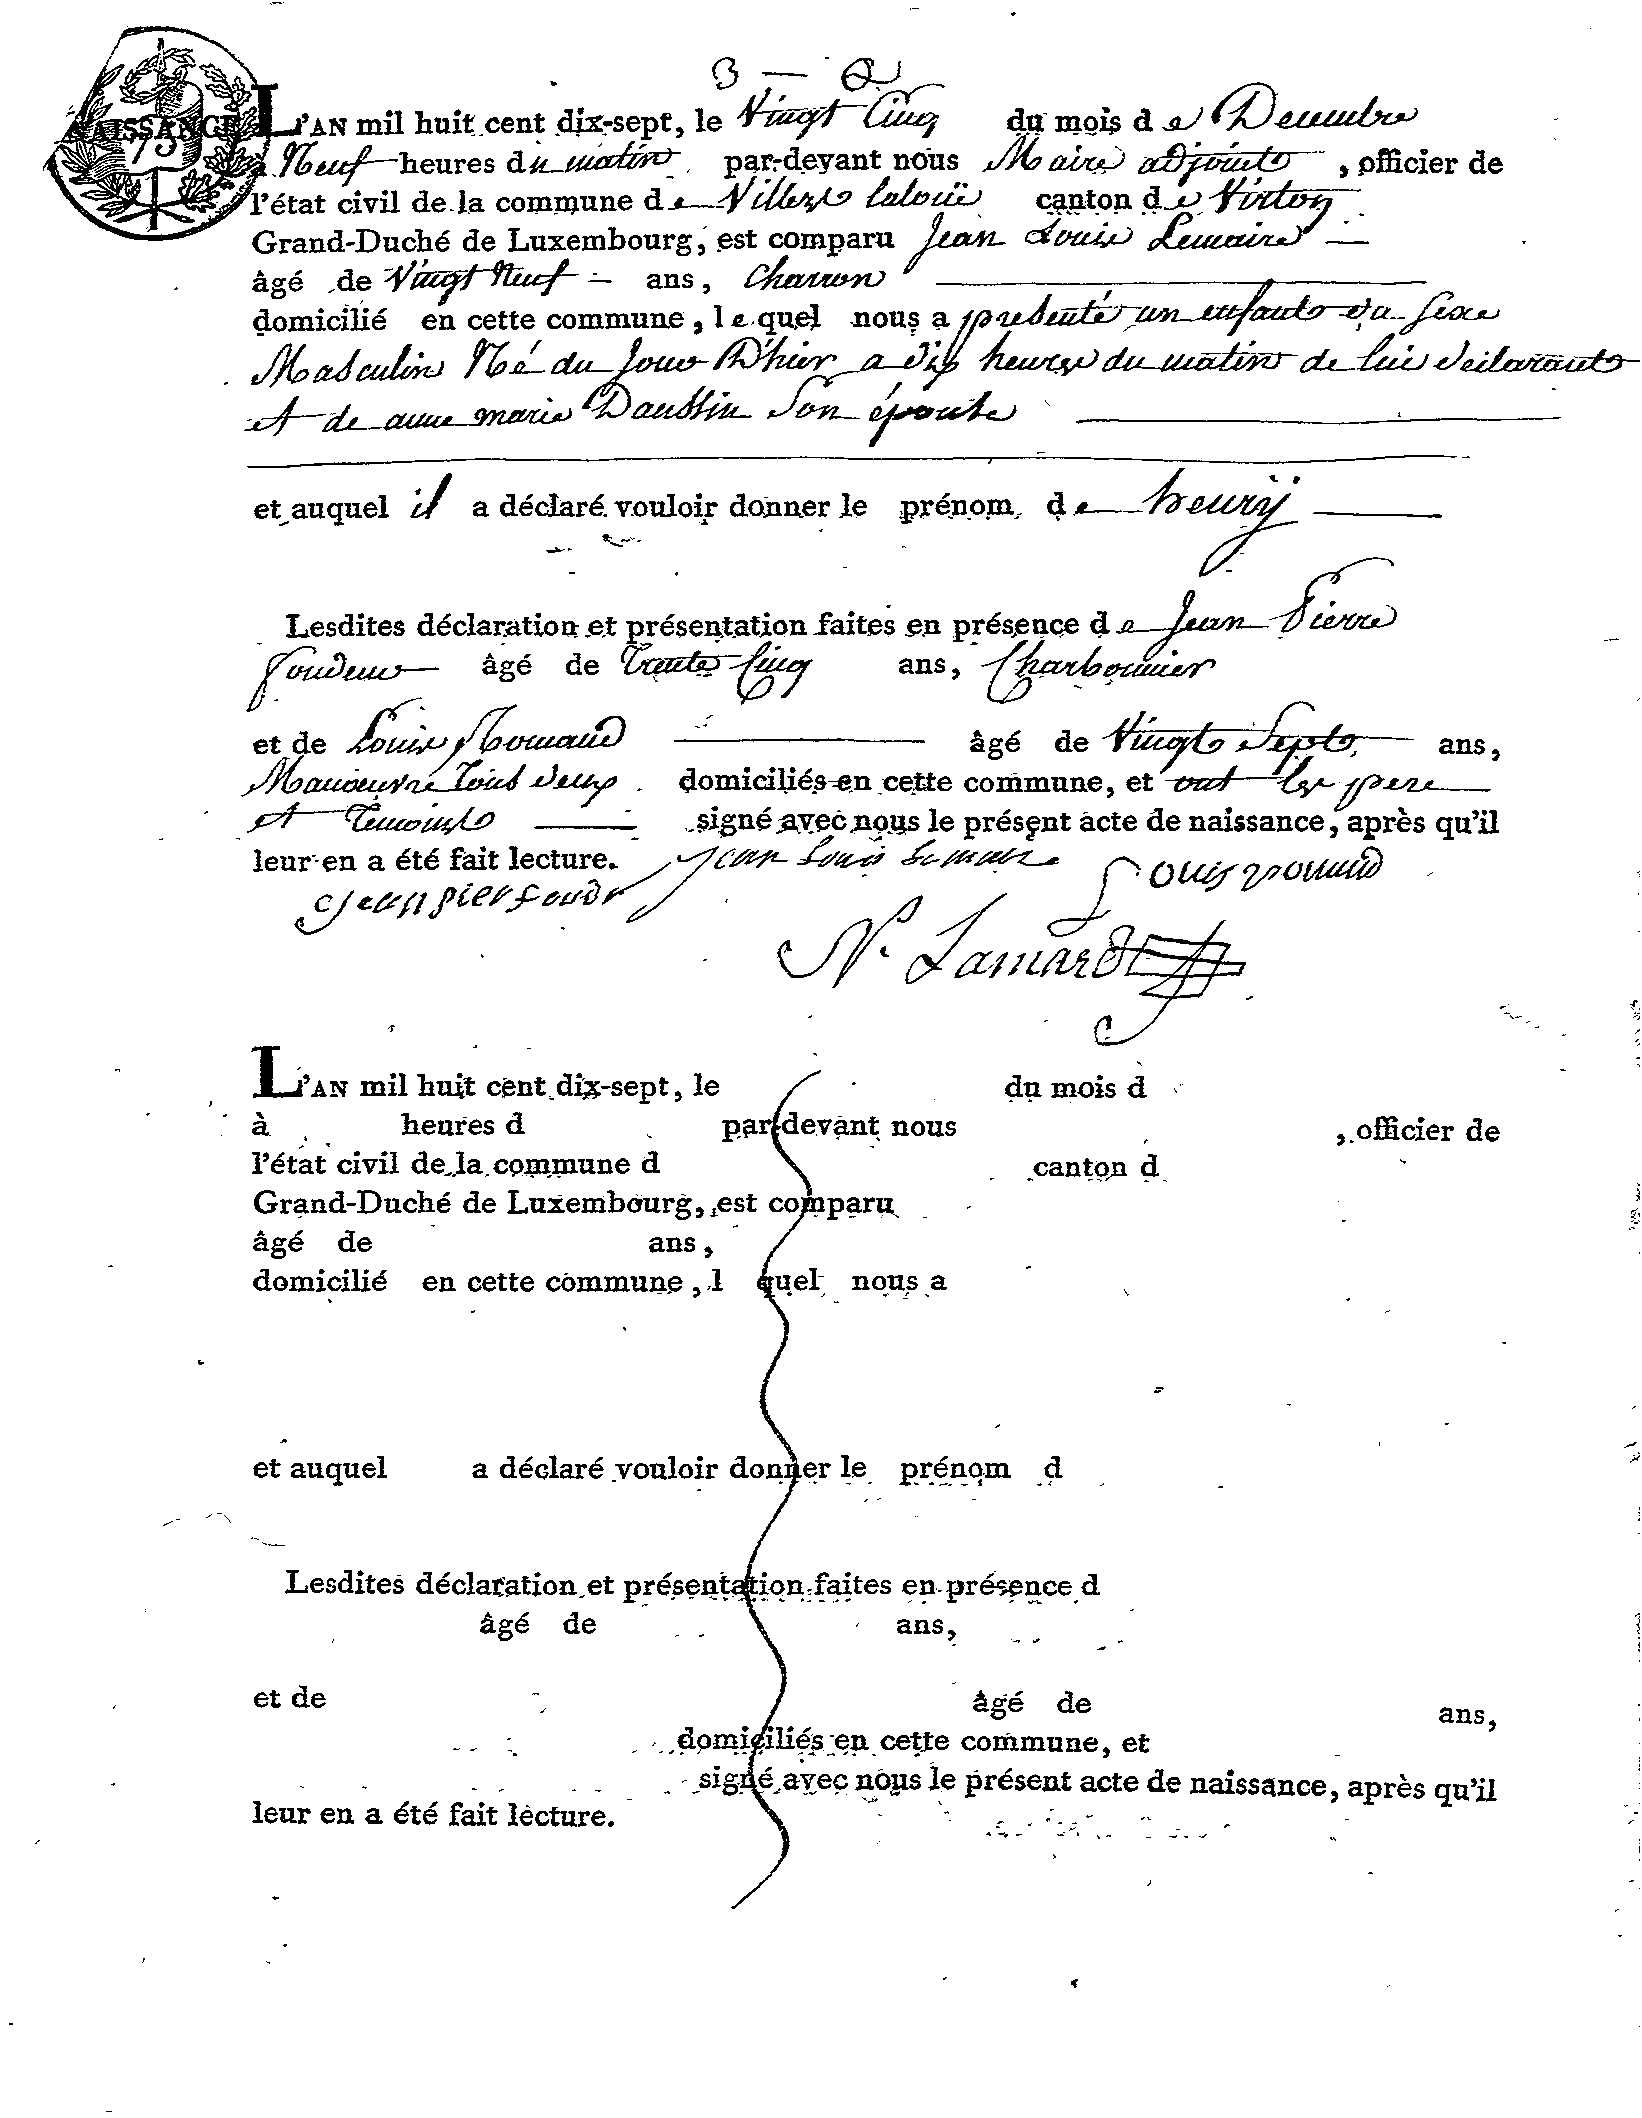 3 — 6
NAISSANCE
75
L'AN mil huit cent dix-sept, le Vingt Cinq du mois de Decembre
à Neuf heures du matin par-devant nous Maire adjoint, officier de
l'état civil de la commune de Villers laloüe canton de Virton
Grand-Duché de Luxembourg, est comparu Jean Louis Lemaire
âgé de Vingt Neuf ans, Charron
domicilié en cette commune, lequel nous a presenté un enfant du sexe
Masculin Né du Jour D'hier a dix heures du matin de lui déclarant
et de anne marie Daussin Son épouse
et auquel il a déclaré vouloir donner le prénom de henrÿ
Lesdites déclaration et présentation faites en présence de Jean Pierre
fondeur âgé de Trente Cinq ans, Charbonnier
et de Louis âgé de Vingt Sept ans,
Manoeuvre Tous deux domiciliés en cette commune, et ont les pere
et Temoins signé avec nous le présent acte de naissance, après qu'il
leur en a été fait lecture. Jean Louis Lemaire Louis
Jean pier fondr
N. Lamard
L'AN mil huit cent dix-sept, le du mois d
à heures d par-devant nous , officier de
l'état civil de la commune d canton d
Grand-Duché de Luxembourg, est comparu
âgé de ans,
domicilié en cette commune, l quel nous a
et auquel a déclaré vouloir donner le prénom d
Lesdites déclaration et présentation faites en présence d
âgé de ans,
et de âgé de ans,
domiciliés en cette commune, et
signé avec nous le présent acte de naissance, après qu'il
leur en a été fait lecture.